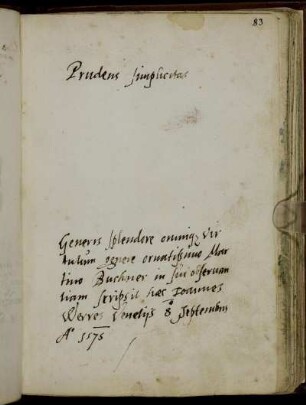 83
Prudens simplicitas
Generis splendore omniq; vir
tutum genere ornatissimo Mar
tino Buchner in sui observan
tiam scripsit haec Joannes
Venetijs 8 Septembris
Aº 1575